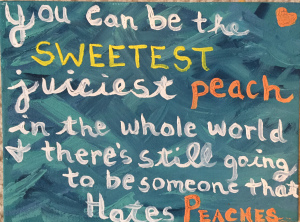 you can be the
SWEETEST
juiciest peach
in the whole world
& there's still going
to be someone that
Hates PEACHES